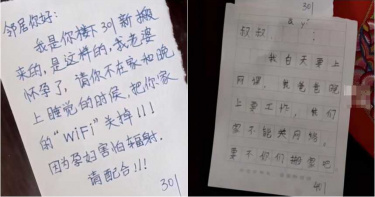 邻居你好:
我是你楼下301新搬
来的,是这样的,我老婆
怀孕了,请你不在家和晚
上睡觉的时候,把你家
的“WiFi”关掉!!!
因为孕妇害怕辐射.
请配合!!!
301
301
叔叔:
我白天要上
网课,我爸爸晚
上要工作,我们
家不能关网络,
要不你们搬家吧
401